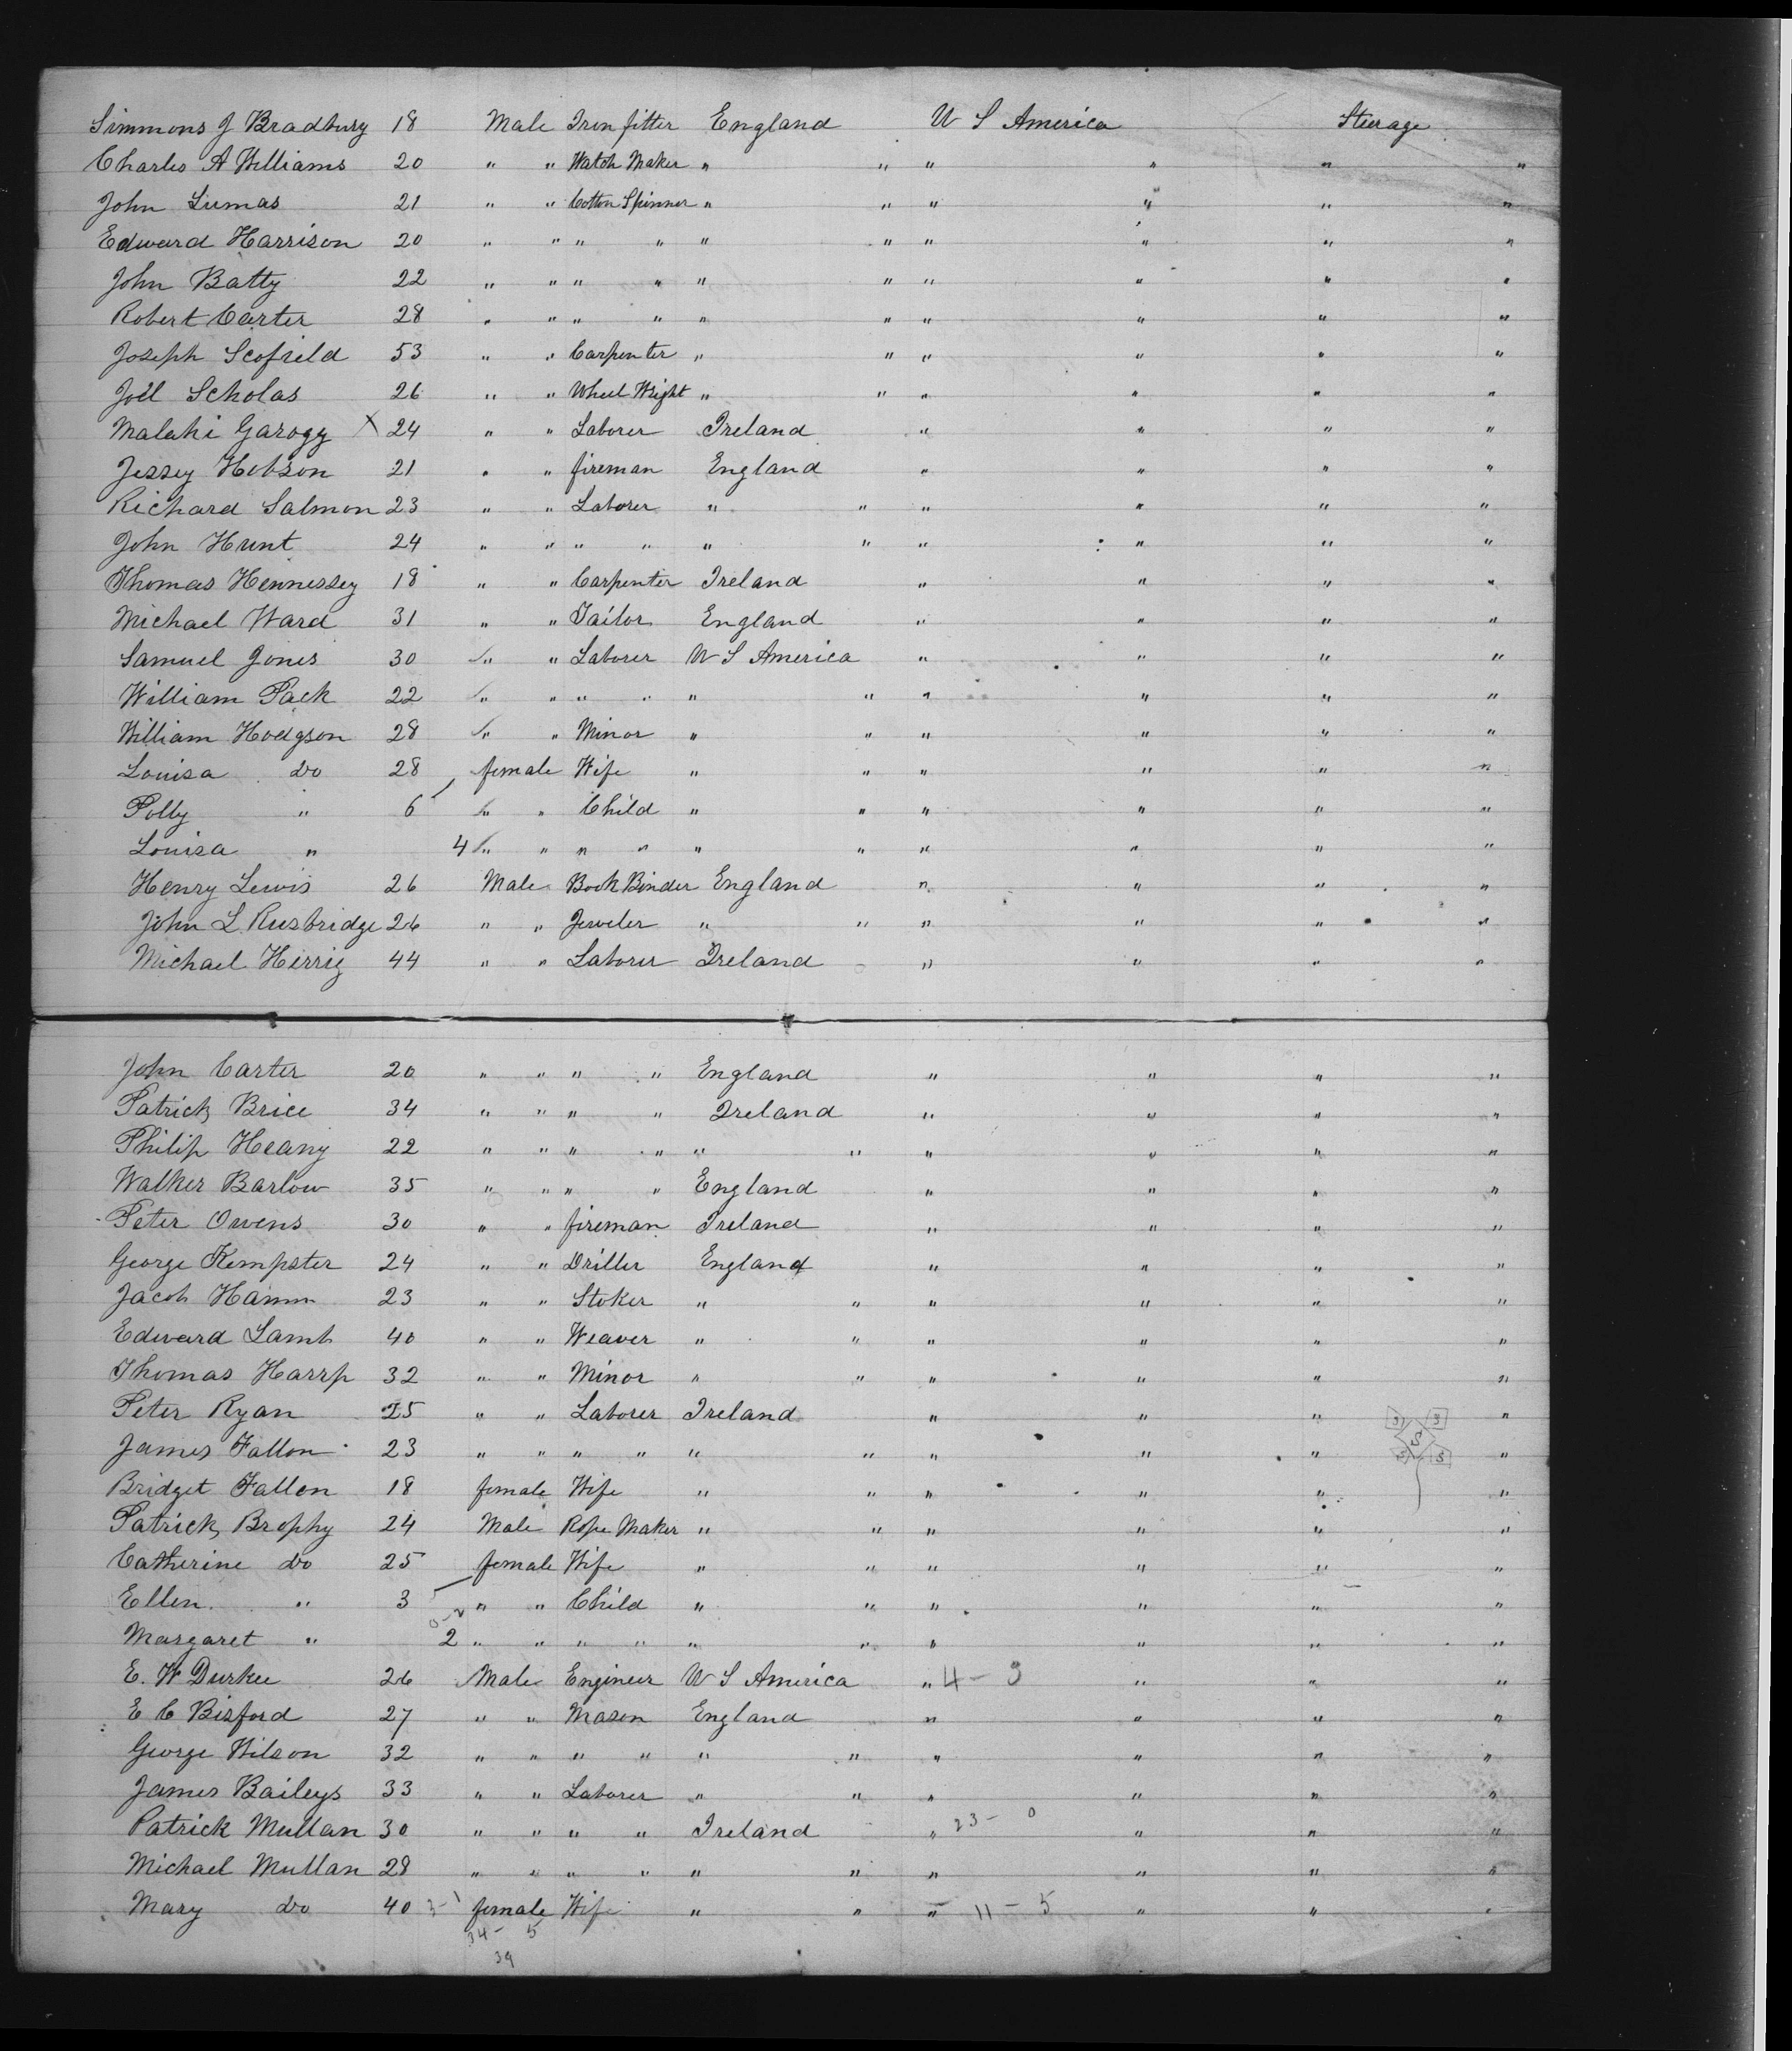 Simmons J Bradbury 18 Male Iron fitter England U S America Steerage
Charles A Williams 20 " " Watch Maker " " " " " "
John Lumas 21 " " Cotton Spinner " " " " " "
Edward Harrison 20 " " " " " " " " " "
John Batty 22 " " " " " " " " " "
Robert Carter 28 " " " " " " " " " "
Joseph Scofield 53 " " Carpenter " " " " " "
Joel Scholas 26 " " Wheel Wright " " " " " "
Malahi Garogy X 24 " " Laborer Ireland " " " "
Jessey Hobson 21 " " fireman England " " " "
Richard Salmon 23 " " Laborer " " " " " "
John Hunt 24 " " " " " " " " " "
Thomas Hennessey 18 " " Carpenter Ireland " " " "
Michael Ward 31 " " Tailor England " " " "
Samuel Jones 30 " " Laborer U S America " " " "
William Pack 22 " " " " " " " " " "
William Hodgson 28 " " Minor " " " " " "
Louisa do 28 female Wife " " " " " "
Polly " 6 " " Child " " " " " "
Louisa " 4 " " " " " " " " " "
Henry Lewis 26 Male Book Binder England " " " "
John L. Rusbridge 26 " " Jeweler " " " " " "
Michael Herrig 44 " " Laborer Ireland " " " "
John Carter 20 " " " " England " " " "
Patrick Brice 34 " " " " Ireland " " " "
Philip Heany 22 " " " " " " " " " "
Walker Barlow 35 " " " " England " " " "
Peter Owens 30 " " fireman Ireland " " " "
George Kempster 24 " " Driller England " " " "
Jacob Hamm 23 " " Stoker " " " " " "
Edward Lamb 40 " " Weaver " " " " " "
Thomas Harrp 32 " " Minor " " " " " "
Peter Ryan 25 " " Laborer Ireland " " " "
James Fallon 23 " " " " " " " " " "
Bridget Fallon 18 female Wife " " " " " "
Patrick Brophy 24 Male Rope Maker " " " " " "
Catherine do 25 female Wife " " " " " "
Ellen " 3 " " Child " " " " " "
Margaret " 2 " " " " " " " " " "
E. W Durkee 26 Male Engineer U S America " 4 - 3 " " "
E C Bisford 27 " " Mason England " " " "
George Wilson 32 " " " " " " " " " "
James Baileys 33 " " Laborer " " " " " "
Patrick Mullan 30 " " " " Ireland " 23 - 0 " " "
Michael Mullan 28 " " " " " " " " " "
Mary do 40 3-1 female Wife " " " 11 - 5 " " "
34 - 5
39